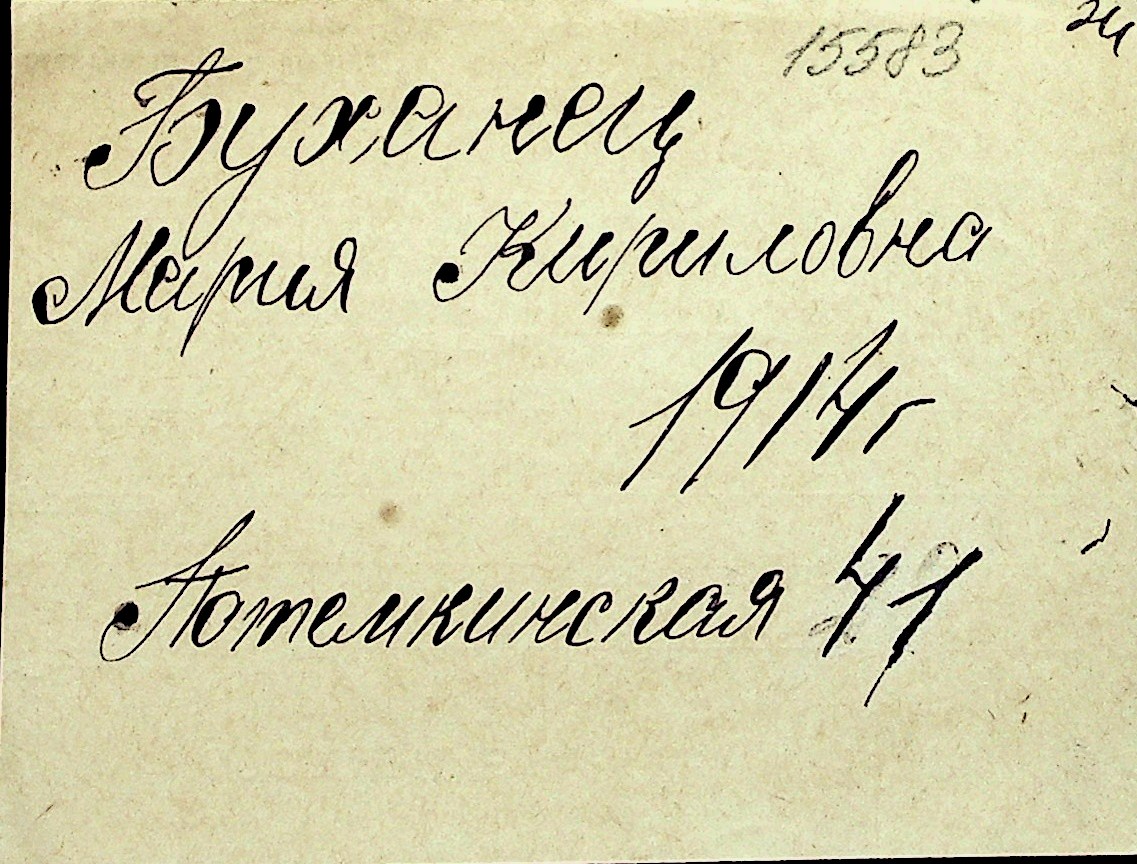 15583
Буханец
Мария Кириловна
1914г
Потемкинская 41